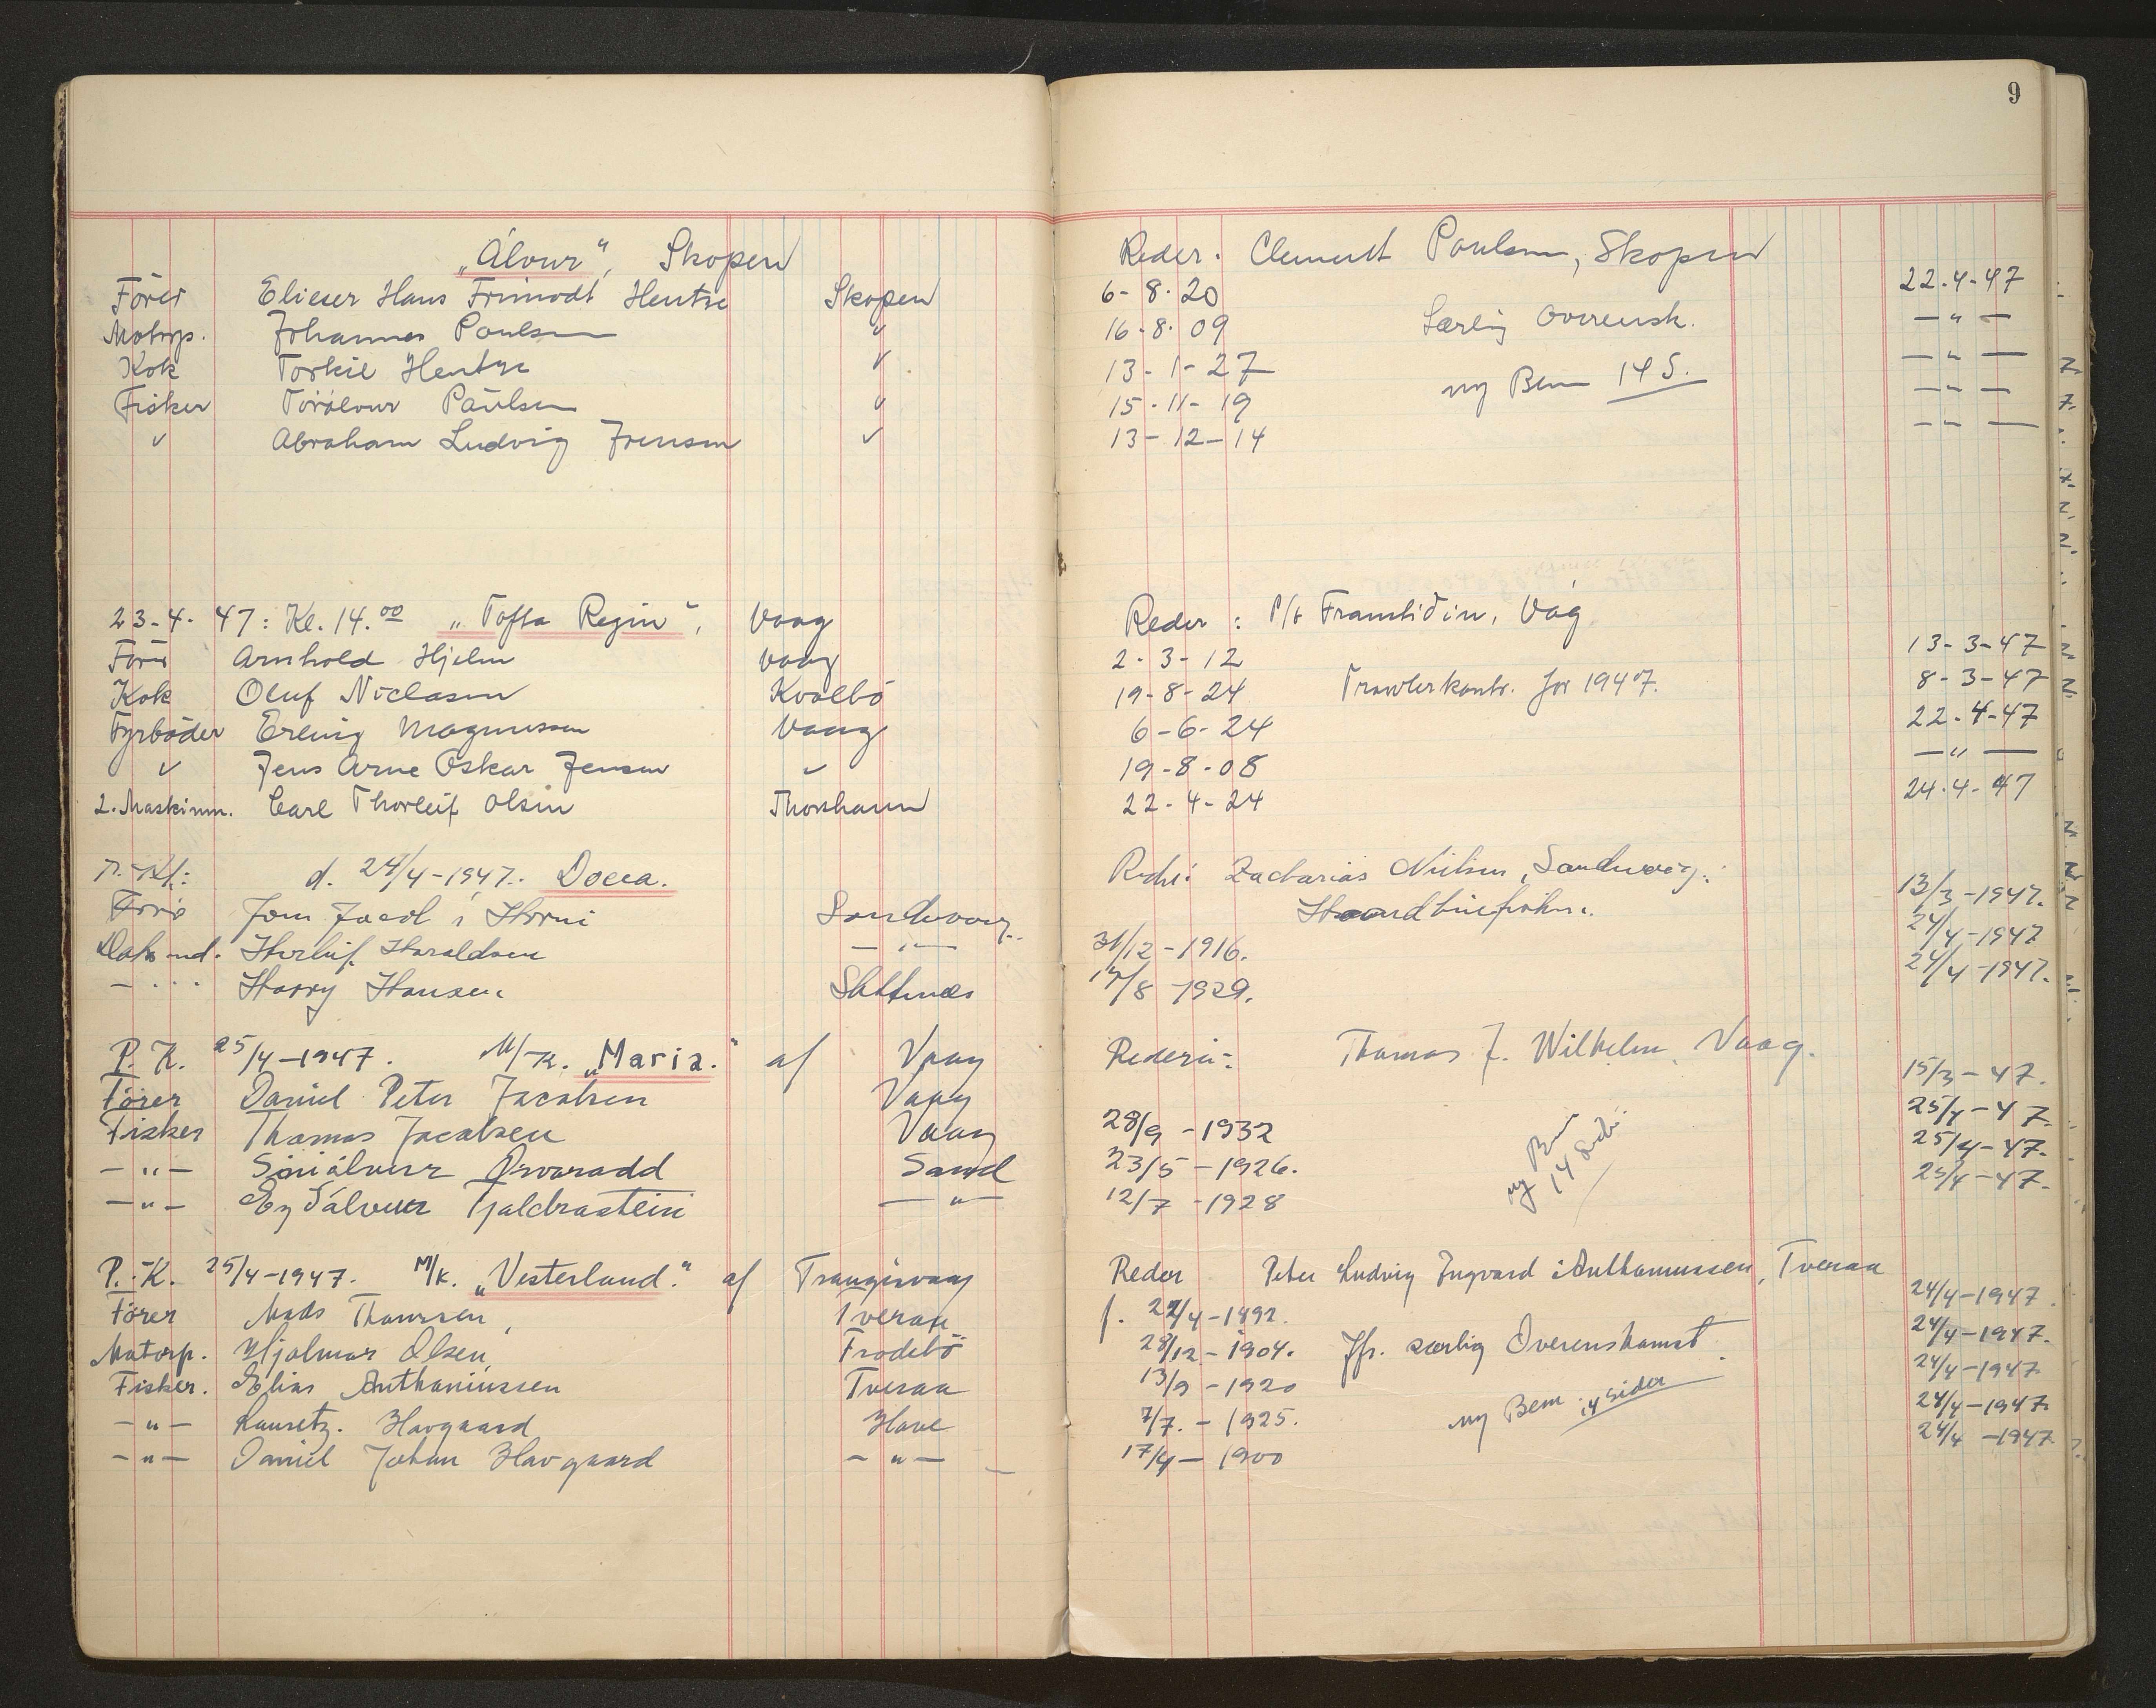 9
„Álvur“, Skopen
Reder. Clement Poulsen, Skopen
Förer Elieser Hans Frimodt Hentze Skopen 6-8-20 22.4-47
Motorp. Johannes Poulsen " 16-8-09 Særlig Overensk. —"—
Kok Torkil Hentze " 13-1-27 —"—
ny Bem 14 S.
Fisker Tórálvur Paulsen " 15-11-19 —"—
" Abraham Ludvig Joensen " 13-12-14 —"—
23-4-47: Kl. 14.00 „Tofta Regin“, Vaag
Reder: P/f Framtíðin, Vág
Förer Arnhold Hjelm Vaag 2-3-12 13-3-47
Kok Oluf Niclasen Kvalbö 19-8-24 Trawlerkontr. for 1947. 8-3-47
Fyrböder Erling Magnussen Vaag 6-6-24 22-4-47
" Jens Arne Oskar Jensen " 19-8-08 —"—
2. Maskinm. Carl Thorleif Olsen Thorshavn 22-4-24 24-4-47
d. 24/4-1947. Docea.
Zacharias Nielsen, Sandvaag.
Förer Sandvaag. 13/3-1947.
Haraldsen —"— 31/12-1916. 24/4-1947
Harry Hansen 8-1929. 24/4-1947.
P. K. 25/4-1947. M/K. „Maria.“ af Vaag
Rederi: Thomas J. Wilhelm, Vaag.
Förer Daniel Peter Jacobsen Vaag 15/3-47.
Fisker Thomas Jacobsen Vaag 28/9-1932 25/4-47.
—"— Sand 23/5-1926. 25/4-47.
ny Bem 14 Sider
—"— Tjaldrastein —"— 12/7-1928 25/4-47.
P.-K. 25/4-1947. M/k. „Vesterland.“ af Trangisvaag
Reder Peter Ludvig Ingvard Anthoniussen, Tveraa
Förer Mads Thomsen, Tveraa f. 22/4-1892. 24/4-1947.
Motorp. Hjalmar Olsen, Frodebö 28/12-1904. Jfr. særlig Overenskomst. 24/4-1947.
Fisker. Elias Anthoniussen Tveraa 13/9-1920 24/4-1947
—"— Lauretz. Havgaard Hove 7/7.-1925. ny Bem 14 Sider 24/4-1947.
—"— Daniel Johan Havgaard —"— 17/4-1900 24/4-1947.